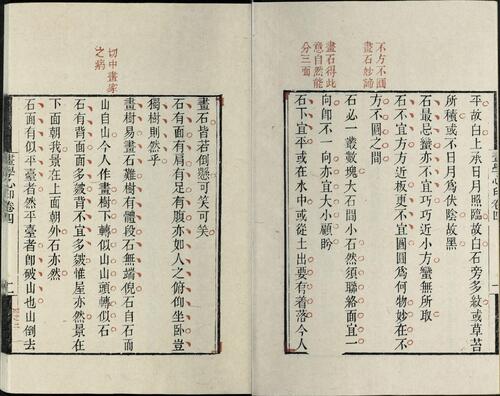 不方不圓
畫石妙諦
畫石得此
意自然能
分三面
平故白日月照臨故白石旁多紋或草苔
所積或不日月爲伏陰故黑
石最忌蠻亦不宜巧巧近小方蠻無所取
石不宜方方近板更不宜圓圓爲何物妙在不
方不圓之間
石必一叢數塊大石間小石然須聯絡面宜一
向卽不一向亦宜大小顧盼
石下宜平或在水中或從土出要有着落今人
畫學心印卷四
切中畫家
之病
畫石皆若倒懸可笑可笑
石有面有肩有足有腹亦如人之俯仰坐卧豈
獨樹則然乎
畫樹易畫石難樹有體段石無端倪石自石而
山自山今人作畫樹下轉似山山頭轉似石
石有背面面多皴背不宜多皴惟屋亦然景在
下面朝我景在上面朝外石亦然
石面有似平臺者然平臺者卽破山也山倒去
畫學心印卷四